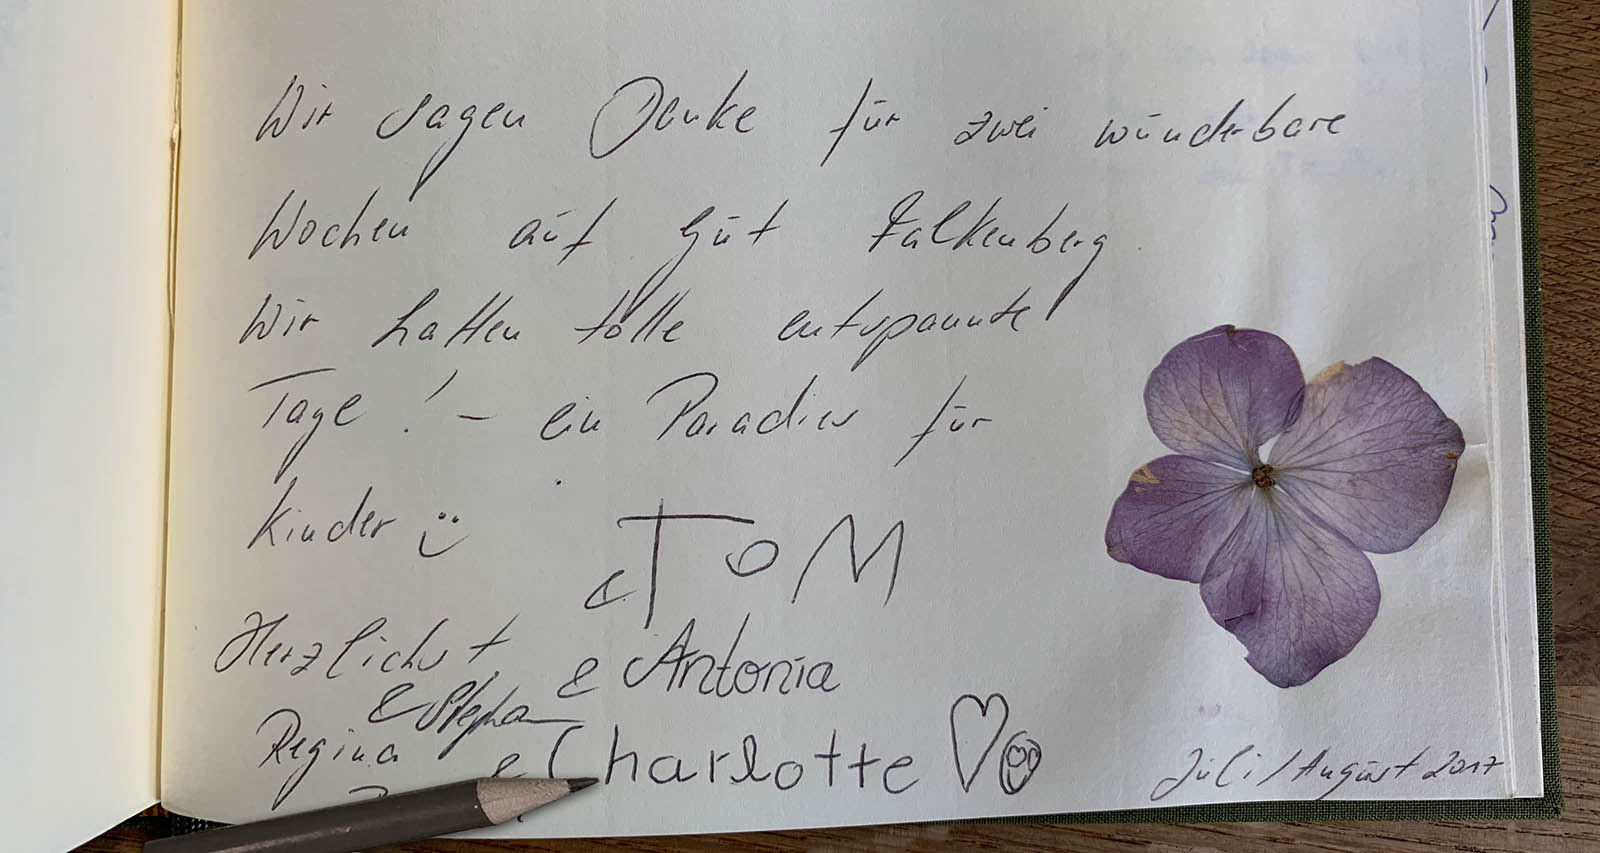 Wir sagen Danke für zwei wunderbare
Wochen auf Gut Falkenberg.
Wir hatten tolle entspannte
Tage! - ein Paradies für
Kinder
TOM
Herzlichst
& Antonia
& Stephan
Regina
& Charlotte
Juli/August 2017